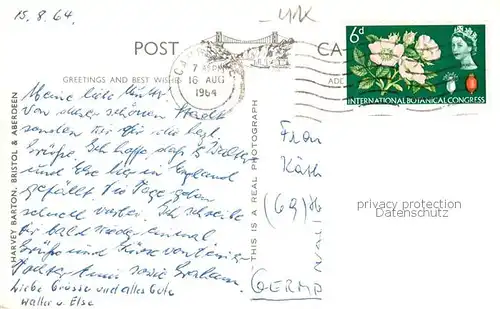 15.8.64.
UK
POST CA
GREETINGS AND BEST WISHES
7 PM
16 AUG
1964
6d
INTERNATIONAL BOTANICAL CONGRESS
Meine liebe Mutti.
Von dieser schönen Stadt
senden wir Dir die herzl.
Grüße. Ich hoffe, daß es Walter
und Else hier in England
gefällt. Die Tage gehen
schnell vorbei. Ich schreibe
Dir bald wieder einmal.
Grüße und Küsse von Deiner
Tochter sowie Graham.
Liebe Grüsse und alles Gute
Walter u. Else
HARVEY BARTON, BRISTOL & ABERDEEN
THIS IS A REAL PHOTOGRAPH
Frau
Käth
privacy protection
Datenschutz